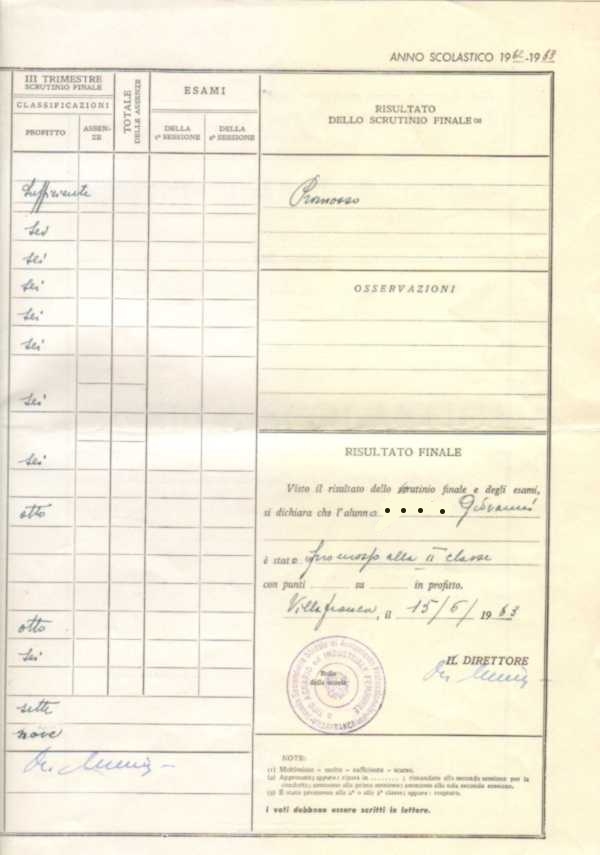 ANNO SCOLASTICO 1962-1963
III TRIMESTRE
SCRUTINIO FINALE
CLASSIFICAZIONI
PROFITTO
ASSEN-
ZE
TOTALE
DELLE ASSENZE
ESAMI
DELLA
1ª SESSIONE
DELLA
2ª SESSIONE
Sufficiente
sei
sei
sei
sei
sei
sei
sei
otto
otto
sei
sette
nove
RISULTATO
DELLO SCRUTINIO FINALE (2)
Promosso
OSSERVAZIONI
RISULTATO FINALE
Visto il risultato dello scrutinio finale e degli esami,
si dichiara che l'alunno . . . . Giovanni
è stato promosso alla II classe
con punti su in profitto.
Villafranca, il 15/6/ 1963
IL DIRETTORE
Bollo
della scuola
NOTE:
(1) Moltissimo - molto - sufficiente - scarso.
(2) Approvato; oppure: ripara in ........; rimandato alla seconda sessione per la
condotta; ammesso alla prima sessione; ammesso alla sola seconda sessione.
(3) È stato promosso alla 2ª o alla 3ª classe; oppure: respinto.
I voti debbono essere scritti in lettere.